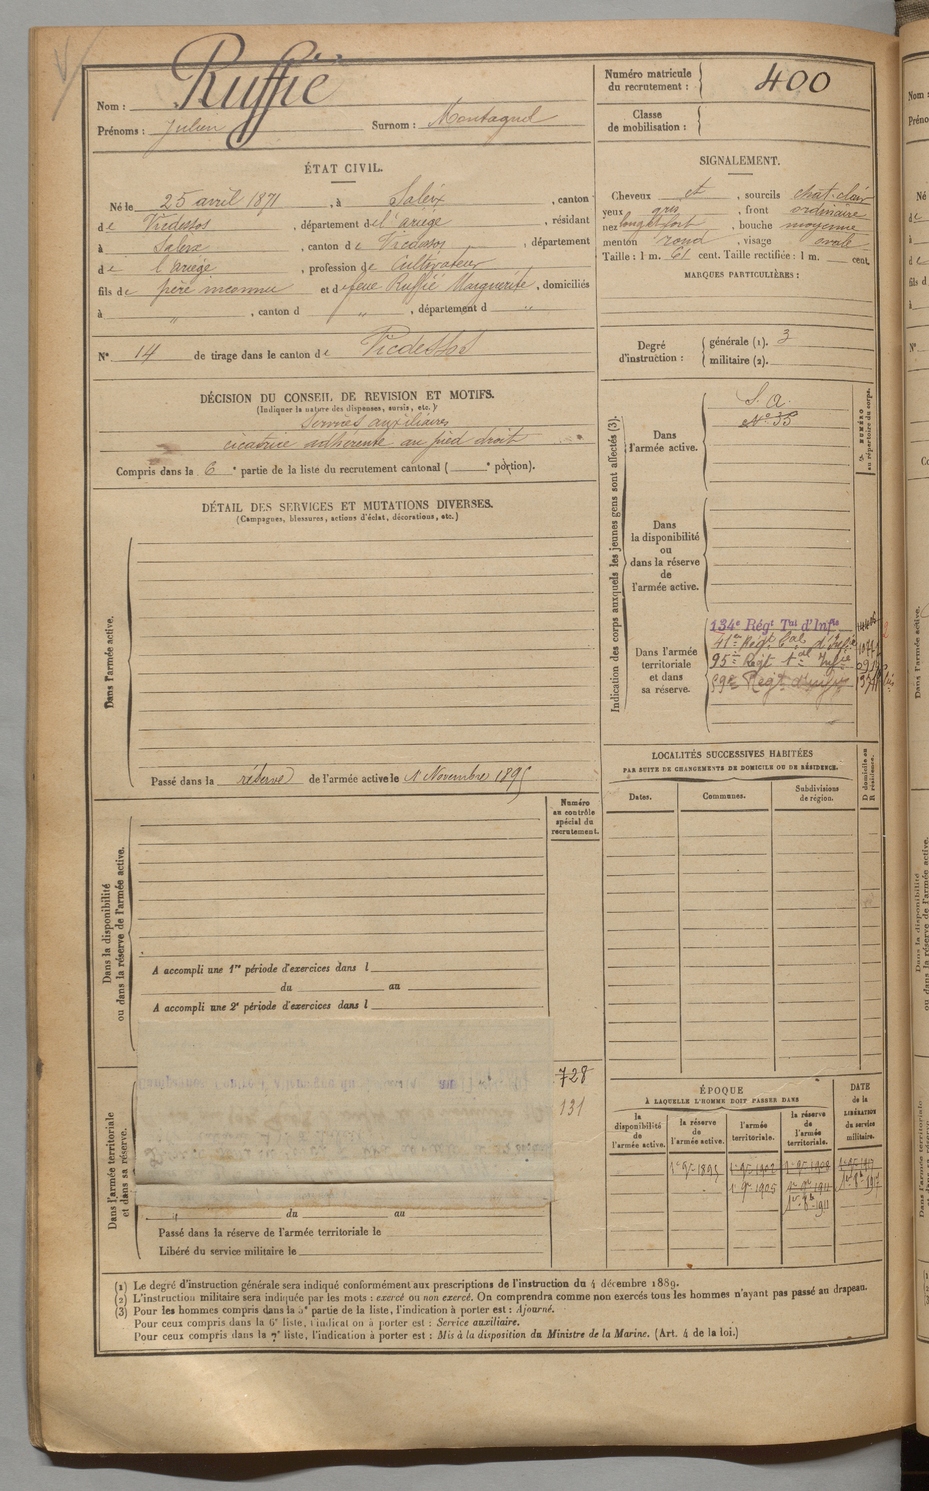 Nom : Ruffié
Prénoms : Julien Surnom : Montagnol
Numéro matricule du recrutement : 400
Classe de mobilisation :
ÉTAT CIVIL.
Né le 25 avril 1871, à Saleix, canton
de Vicdessos, département de l'ariège, résidant
à Saleix, canton de Vicdessos, département
de l'ariège, profession de Cultivateur
fils de père inconnu et de feue Ruffié Marguerite, domiciliés
à " , canton d " , département d "
N° 14 de tirage dans le canton de Vicdessos
SIGNALEMENT.
Cheveux et , sourcils chat-clair
yeux gris , front ordinaire
nez long et fort , bouche moyenne
menton rond , visage ovale
Taille : 1 m. 61 cent. Taille rectifiée : 1 m. cent.
MARQUES PARTICULIÈRES :
Degré d'instruction :
générale (1). 3
militaire (2).
DÉCISION DU CONSEIL DE REVISION ET MOTIFS.
(Indiquer la nature des dispenses, sursis, etc.)
Services auxiliaires
cicatrice adhérente au pied droit
Compris dans la 6e partie de la liste du recrutement cantonal ( e portion).
DÉTAIL DES SERVICES ET MUTATIONS DIVERSES.
(Campagnes, blessures, actions d'éclat, décorations, etc.)
Dans l'armée active.
Passé dans la réserve de l'armée active le 1 Novembre 1895
Indication des corps auxquels les jeunes gens sont affectés (3).
NUMÉRO au répertoire du corps.
Dans l'armée active.
S. A.
N° 35
Dans la disponibilité ou dans la réserve de l'armée active.
Dans l'armée territoriale et dans sa réserve.
134e Régt Tal d'Infie
41e Régt tal d'Infie
95e Régt tal Infie
59e Régt d'infie
LOCALITÉS SUCCESSIVES HABITÉES
PAR SUITE DE CHANGEMENTS DE DOMICILE OU DE RÉSIDENCE.
Dates. Communes. Subdivisions de région. D domicile ou R résidence.
Numéro au contrôle spécial du recrutement.
Dans la disponibilité ou dans la réserve de l'armée active.
A accompli une 1re période d'exercices dans l
du au
A accompli une 2e période d'exercices dans l
728
131
Dans l'armée territoriale et dans sa réserve.
du au
Passé dans la réserve de l'armée territoriale le
Libéré du service militaire le
ÉPOQUE
À LAQUELLE L'HOMME DOIT PASSER DANS
la disponibilité de l'armée active.
la réserve de l'armée active.
l'armée territoriale.
la réserve de l'armée territoriale.
DATE de la LIBÉRATION du service militaire.
1er 9bre 1895
1er 9bre 1905
(1) Le degré d'instruction générale sera indiqué conformément aux prescriptions de l'instruction du 4 décembre 1889.
(2) L'instruction militaire sera indiquée par les mots : exercé ou non exercé. On comprendra comme non exercés tous les hommes n'ayant pas passé au drapeau.
(3) Pour les hommes compris dans la 5e partie de la liste, l'indication à porter est : Ajourné.
Pour ceux compris dans la 6e liste, l'indication à porter est : Service auxiliaire.
Pour ceux compris dans la 7e liste, l'indication à porter est : Mis à la disposition du Ministre de la Marine. (Art. 4 de la loi.)